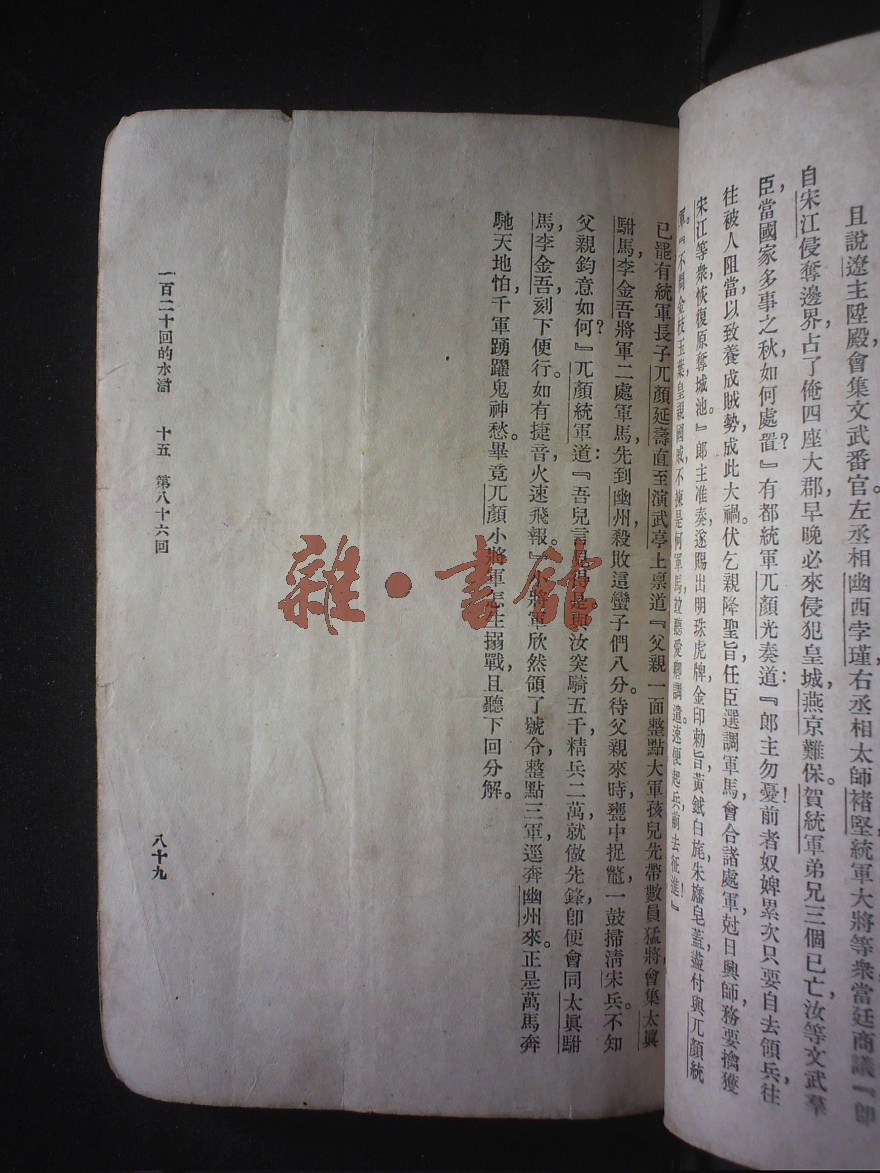 且說遼主陞殿會集文武番官左丞相幽西孛瑾，右丞相太師褚堅，統軍大將等衆，當廷商議『卽
自宋江侵奪邊界，占了俺四座大郡，早晚必來侵犯皇城，燕京難保。賀統軍弟兄三個已亡，汝等文武羣
臣，當國家多事之秋，如何處置？』有都統軍兀顏光奏道：『郎主勿憂！前者奴婢累次只要自去領兵，往
往被人阻當，以致養成賊勢，成此大禍。伏乞親降聖旨，任臣選調軍馬，會合諸處軍，尅日興師，務要擒獲
宋江等衆，恢復原奪城池。』郎主准奏，遂賜出明珠虎牌，金印勅旨，黃鉞白旄，朱旛皂蓋，盡付與兀顏統
軍。『不問金枝玉葉，皇親國戚，不揀是何軍馬，竝聽愛卿調遣。速便起兵，前去征進！』
已罷，有統軍長子兀顏延壽，直至演武亭上稟道：『父親一面整點大軍，孩兒先帶數員猛將，會集太眞
駙馬，李金吾將軍二處軍馬，先到幽州，殺敗這蠻子們八分。待父親來時，甕中捉鼈，一鼓掃清宋兵。不知
父親鈞意如何？』兀顏統軍道：『吾兒言見得是。與汝突騎五千，精兵二萬，就做先鋒，卽便會同太眞駙
馬，李金吾，刻下便行。如有捷音，火速飛報。』小將軍欣然領了號令，整點三軍，逕奔幽州來。正是萬馬奔
馳天地怕，千軍踴躍鬼神愁。畢竟兀顏小將軍怎生搦戰，且聽下回分解。
一百二十回的水滸　十五　第八十六回　八十九
雜·書館